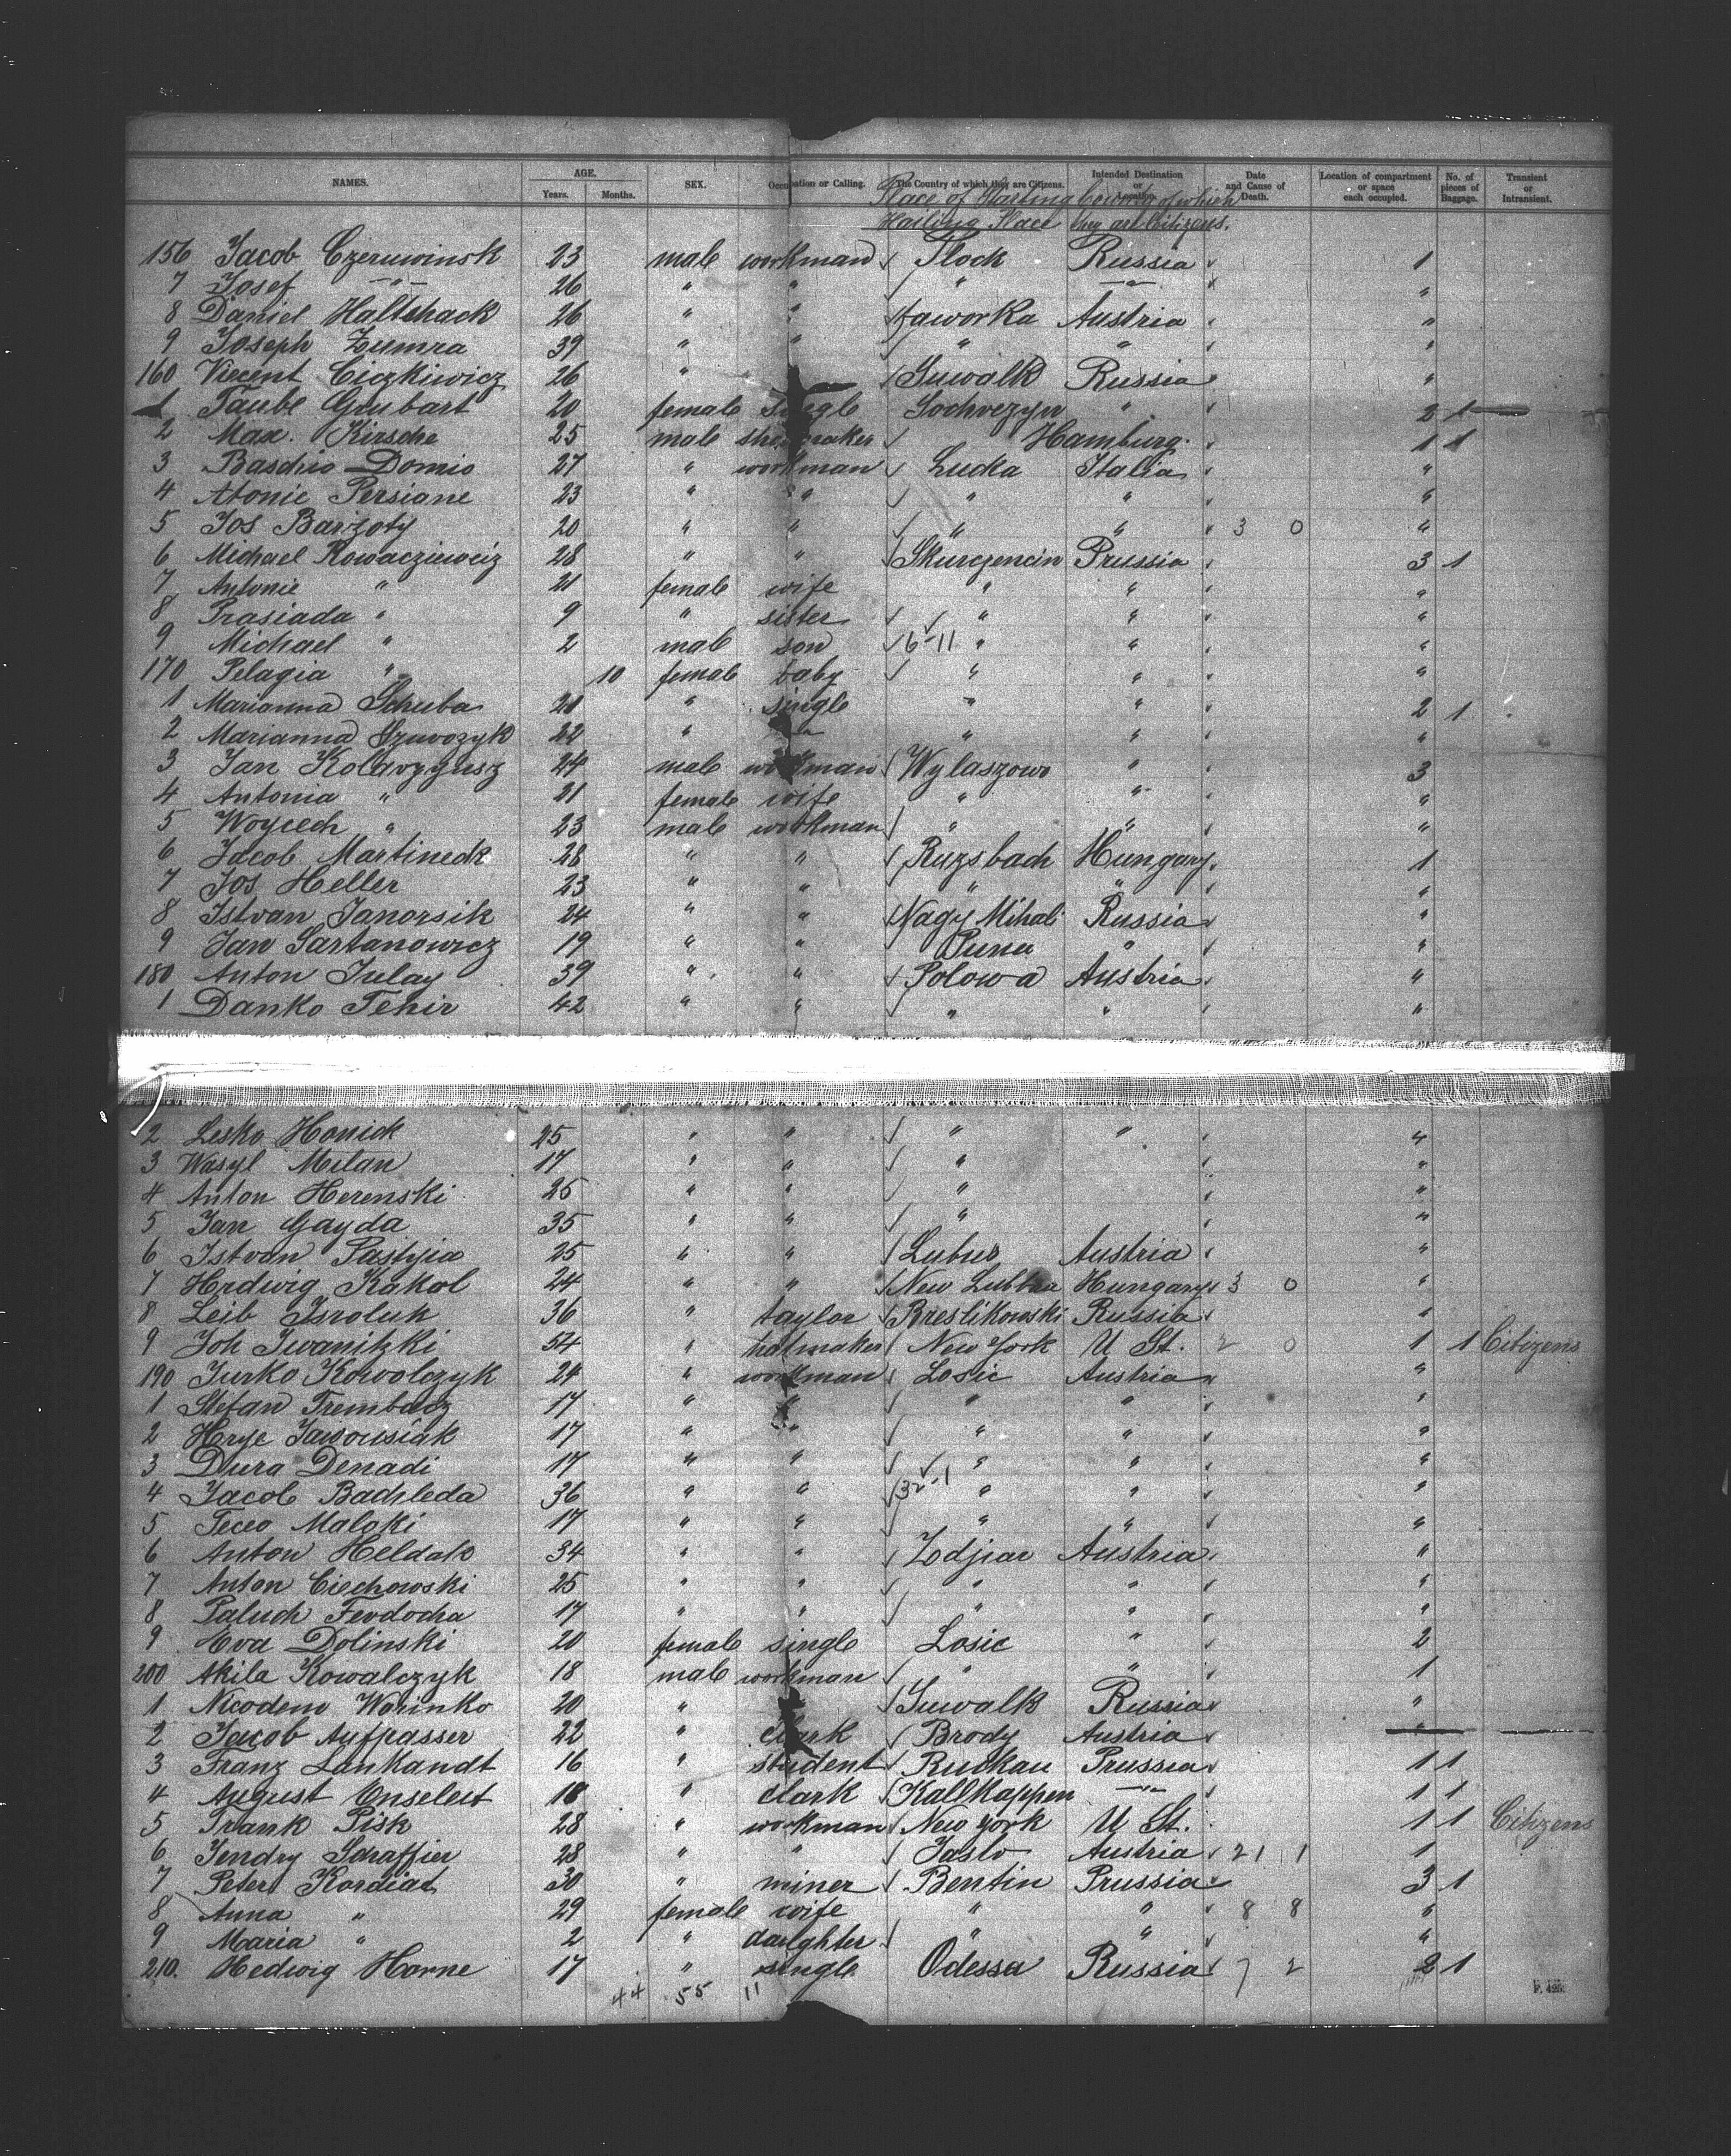 NAMES. AGE. Years. Months. SEX. Occupation or Calling. The Country of which they are Citizens. Intended Destination or Location. Date and Cause of Death. Location of compartment or space each occupied. No. of pieces of Baggage. Transient or Intransient.
Place of Starting Country of which
Hailing Place they are Citizens.
156 Jacob Czeruwinsk 23 male workman Plock Russia 1
7 Josef -"- 26 " " " -"- "
8 Daniel Haltshack 26 " " Jaworka Austria "
9 Joseph Zumra 39 " " " " "
160 Vincent Ciczkiewicz 26 " Suwalk Russia "
1 Taube Grubart 20 female single Sochvezyn " 2 1
2 Max. Kirsche 25 male shoemaker Hamburg. 1 1
3 Baschio Domio 27 " workman Lucka Italia "
4 Atonie Persiane 23 " " " " "
5 Jos Barzoty 20 " " " " 3 0 "
6 Michael Kowacziewciz 28 " " Skurczencin Prussia 3 1
7 Antonie " 21 female wife " " "
8 Prasiada " 9 " sister " " "
9 Michael " 2 male son 6-11 " " "
170 Pelagia " 10 female baby " " "
1 Marianna Schuba 21 " single " " 2 1
2 Marianna Szuvozyk 22 " " " " "
3 Jan Kolavzyusz 24 male workman Wylaszowo " 3
4 Antonia " 21 female wife " " "
5 Woycech " 23 male workman " " "
6 Jacob Martineck 28 " " Ruzsbach Hungary 1
7 Jos Heller 23 " " " " "
8 Istvan Janorsik 24 " " Nagy Mihali Russia "
9 Jan Sartanowicz 19 " " Punu " "
180 Anton Julay 39 " " Polowa Austria "
1 Danko Tehir 42 " " " " "
2 Lesko Honick 25 " " " " "
3 Wasyl Milan 17 " " " "
4 Anton Herenski 25 " " " "
5 Jan Gayda 35 " " " "
6 Istvan Pastyia 25 " " Lubus Austria "
7 Hedwig Kakol 24 " " New Lubbea Hungary 3 0 "
8 Leib Isroluk 36 " taylor Breslikowski Russia "
9 Joh Iwanitzki 54 " hatmaker New York U St. 2 0 1 1 Citizens
190 Jurko Kowolczyk 24 " workman Losic Austria "
1 Stefan Trembacz 17 " " " " "
2 Hrye Jaworusiak 17 " " " " "
3 Dura Denadi 17 " " " " "
4 Jacob Bachleda 36 " " 32-1 " " "
5 Feceo Maloki 17 " " " " "
6 Anton Heldak 34 " " Zdjiar Austria "
7 Anton Ciechowski 25 " " " " "
8 Paluch Fevdocha 17 " " " " "
9 Eva Dolinski 20 female single Losic " 2
200 Akila Kowalczyk 18 male workman " " 1
1 Nicodem Worinko 20 " Suwalk Russia "
2 Jacob Aufpasser 22 " clark Brody Austria "
3 Franz Lankandt 16 " student Ruckau Prussia 1 1
4 August Enseleit 18 " clark Kallkappen -"- 1 1
5 Frank Pisk 28 " workman New York U St. 1 1 Citizens
6 Jendry Schaffier 28 " " Jaslo Austria 21 1 1
7 Peter Kordiat 30 " miner Bentin Prussia 3 1
8 Anna " 29 female wife " " 8 8 "
9 Maria " 2 " daughter " " "
210. Hedwig Horne 17 " single Odessa Russia 7 2 2 1
44 55 11
F. 425.